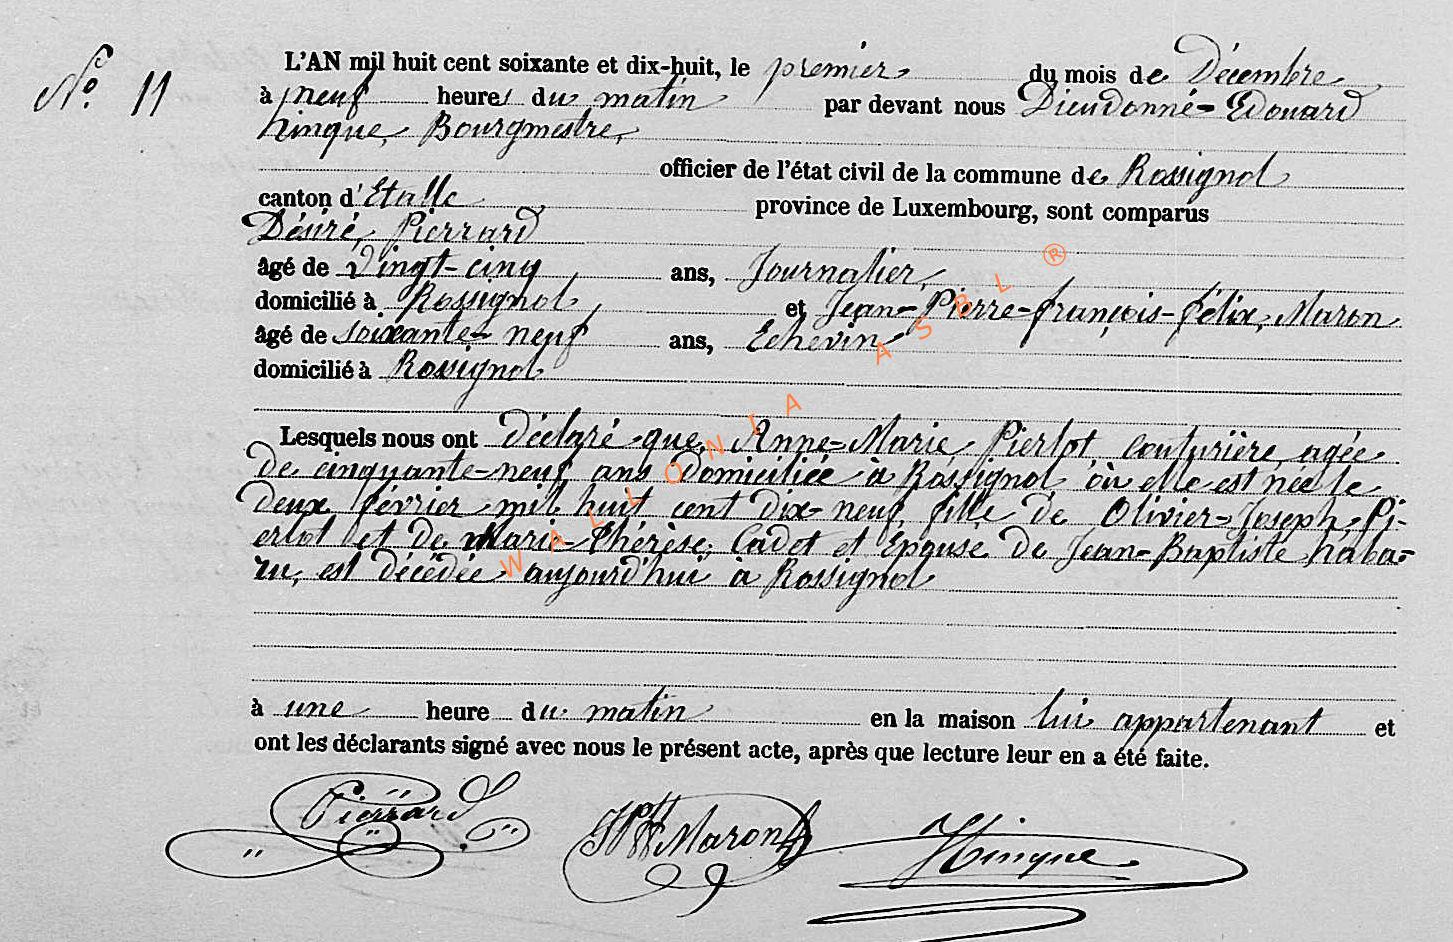 No. 11
L'AN mil huit cent soixante et dix-huit, le premier du mois de Décembre
à neuf heures du matin par devant nous Dieudonné-Edouard
hinque, Bourgmestre,
officier de l'état civil de la commune de Rossignol
canton d'Etalle province de Luxembourg, sont comparus
Désiré, Pierrard
âgé de vingt-cinq ans, Journalier,
domicilié à Rossignol, et Jean-Pierre-françois-félix, Maron
âgé de soixante-neuf ans, Echevin
domicilié à Rossignol
Lesquels nous ont déclaré que, Anne-Marie Pierlot, couturière, agée
de cinquante-neuf ans domiciliée à Rossignol où elle est née le
deux février mil huit cent dix-neuf, fille de Olivier-Joseph Pi-
erlot et de Marie-Thérèse, Cadet et Epouse de Jean-Baptiste haba-
ru, est décédée aujourd'hui à Rossignol
à une heure du matin en la maison lui appartenant et
ont les déclarants signé avec nous le présent acte, après que lecture leur en a été faite.
Pierrard Maron Hinque
WALLONIA ASBL ®